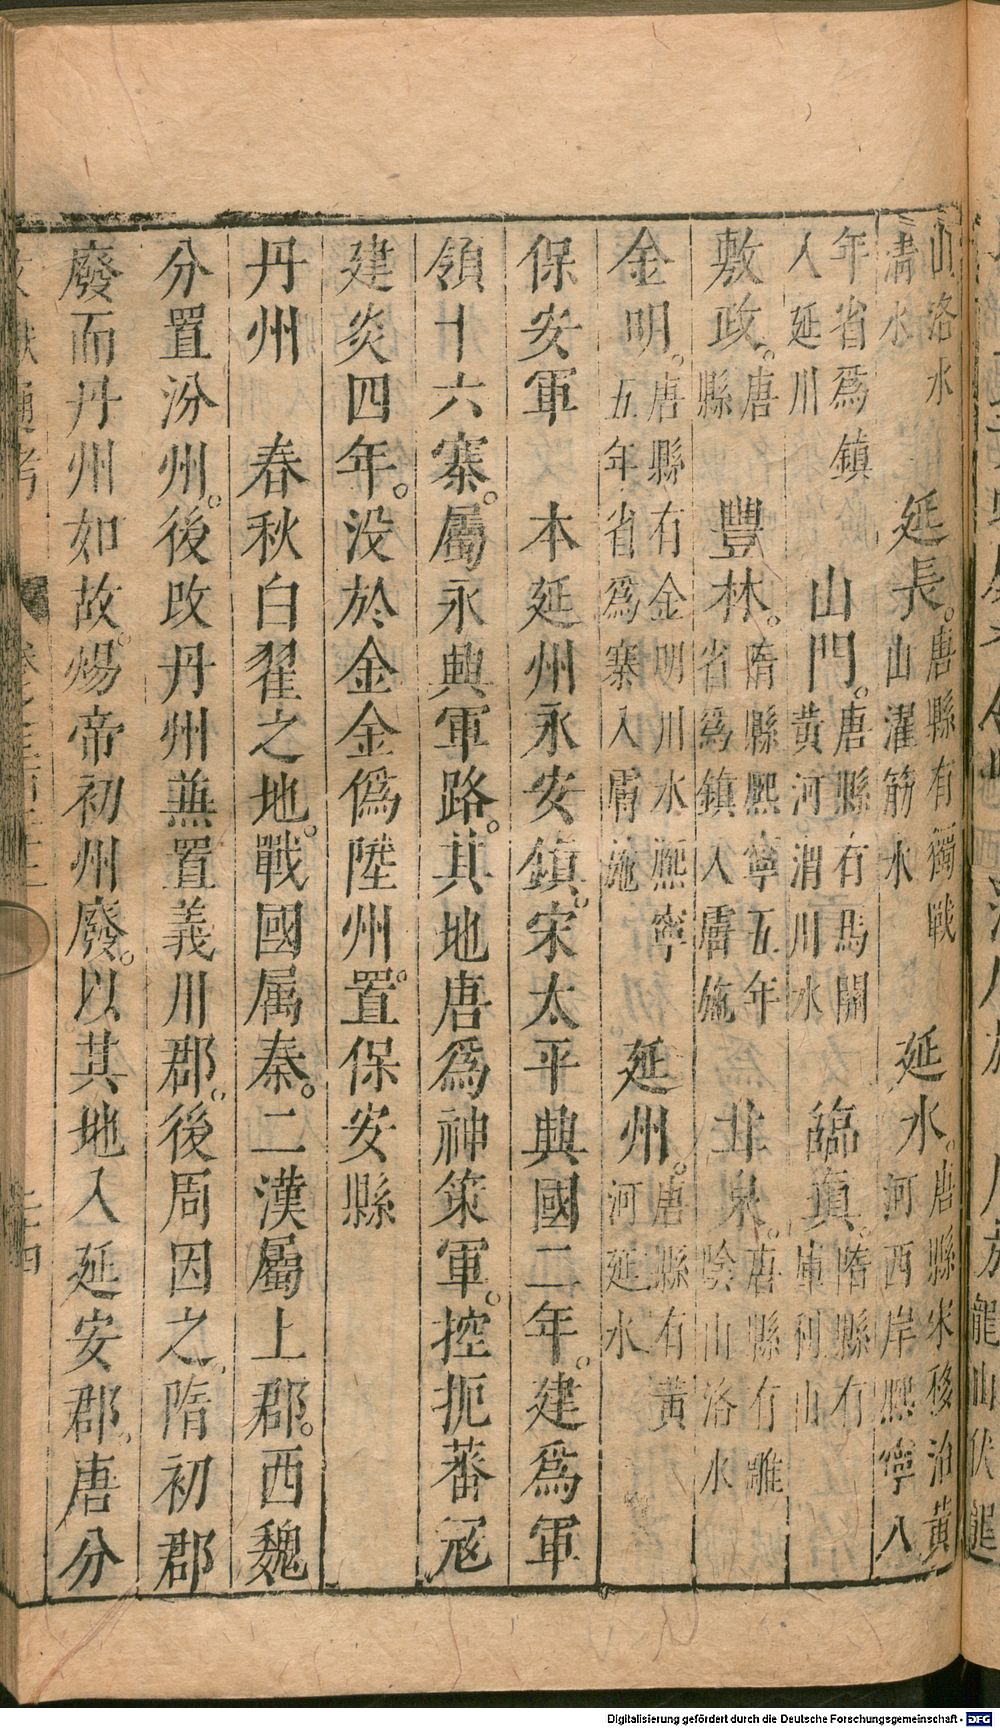 山洛水溝水　延長。唐縣有獨戰山濯筋水　延水。唐縣宋移治黃河西岸熙寧八
年省爲鎮入延川　山門。唐縣有馬關黃河渭川水　臨真。隋縣有庫利山
敷政。唐縣　豐林。隋縣熙寧五年省爲鎮入膚施　　唐縣有雕陰山洛水
金明。唐縣有金明川水熙寧五年省爲寨入膚施　延州。唐縣有黃河延水
保安軍　本延州永安鎮。宋太平興國二年。建爲軍
領十六寨。屬永興軍路。其地唐爲神策軍。控扼蕃寇
建炎四年。没於金金僞陞州。置保安縣
丹州　春秋白翟之地。戰國属秦。二漢屬上郡。西魏
分置汾州。後改丹州兼置義川郡。後周因之。隋初郡
廢而丹州如故。煬帝初州廢。以其地入延安郡。唐分
通考　卷之三百二十二　二十四
Digitalisierung gefördert durch die Deutsche Forschungsgemeinschaft - DFG